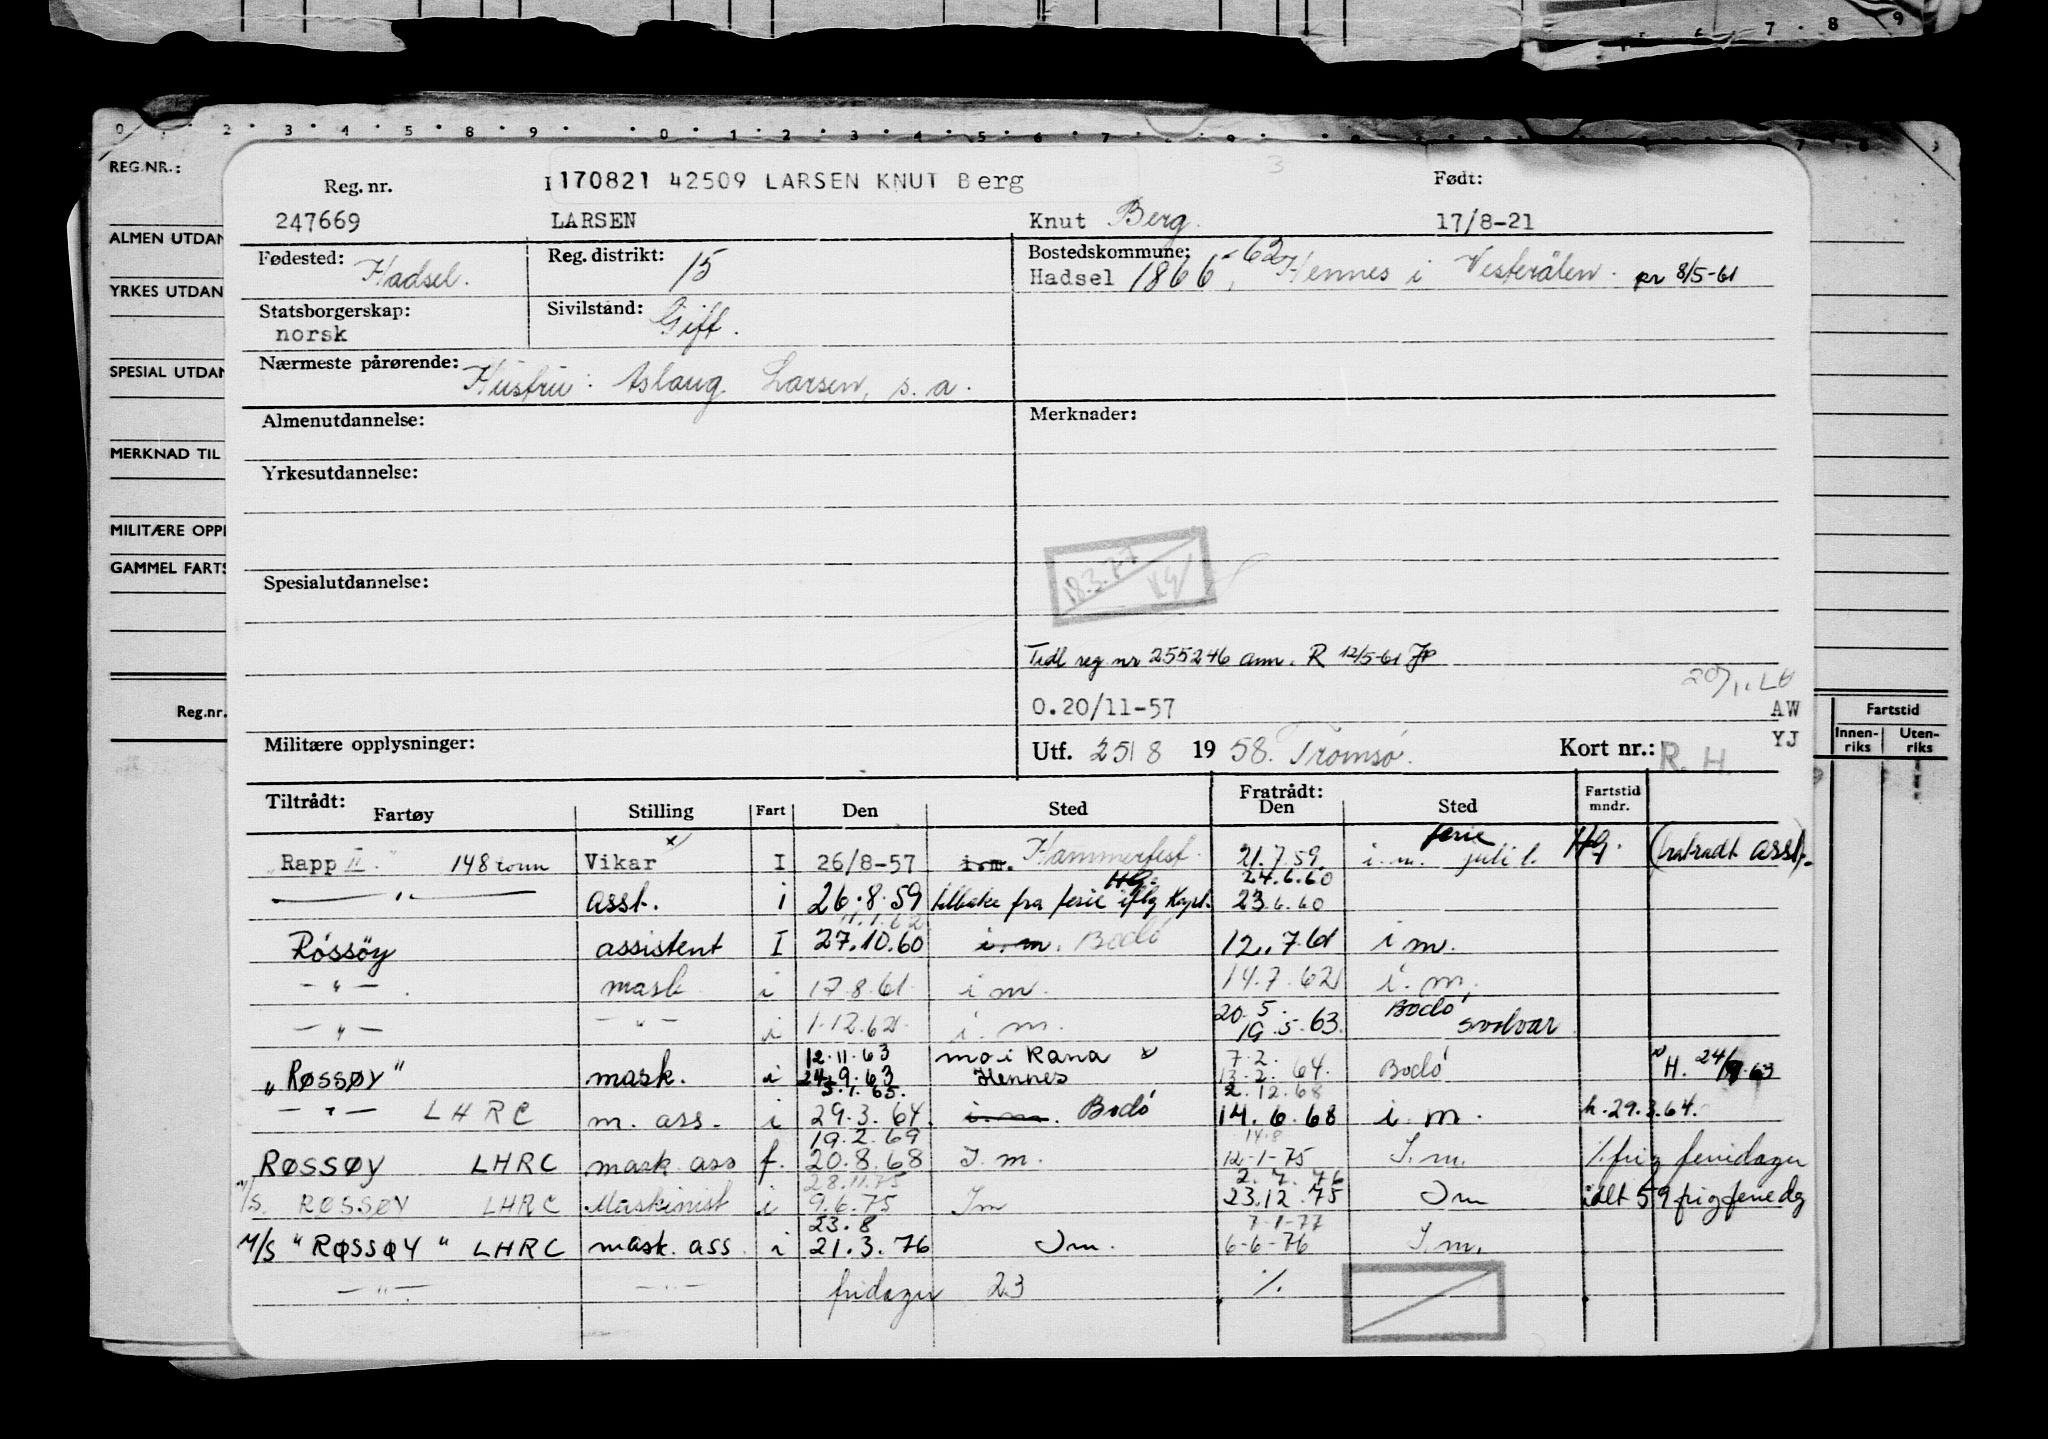 7 . 8 . 9
0 1 2 3 4 5 8 9 0 1 2 3 4 5 6 7
REG.NR.:
ALMEN UTDAN
YRKES UTDAN
SPESIAL UTDAN
MERKNAD TIL
MILITÆRE OPP
GAMMEL FARTS
Reg.nr.
Fartstid
Innen-riks Uten-riks
3
I 170821 42509 LARSEN KNUT Berg
Reg. nr. Født:
247669 LARSEN Knut Berg. 17/8-21
Fødested: Hadsel. Reg. distrikt: 15 Bostedskommune: Hadsel 1866, - 62 Hennes i Vesterålen. pr 8/5-61
Statsborgerskap: norsk Sivilstand: Gift.
Nærmeste pårørende: Hustru: Aslaug Larsen, s. a.
Almenutdannelse: Merknader:
Yrkesutdannelse:
18.3.77
Spesialutdannelse:
Tidl reg nr 255246 ann. R 12/5-61
O.20/11-57
AW
YJ
Militære opplysninger: Utf. 25/8 1958. Tromsø. Kort nr.: R. H.
Tiltrådt: Fratrådt:
Fartøy Stilling Fart Den Sted Den Sted Fartstid mndr.
"Rapp II" 148 tonn Vikar x I 26/8-57 i.m. Hammerfest 21.7.59 i. m. ferie juli l. HG. (fratradt asst.
— " — asst. i 26.8.59 tilbake fra ferie iflg Kapt. HG. 24.6.60 23.6.60
11.1.62
Røssøy assistent I 27.10.60 i.m. Bodø 12.7.61 i m.
— " — mask i 17.8.61 i m. 14.7.62 i. m.
— " — — " — i 1.12.62 i. m. 20.5. 19.5.63. Bodø Svolvær
"RØSSØY" mask. i 12.11.63 24.9.63 mo i Rana x Hennes 7.2. 13.2.64. Bodø H. 24/9.63
— " — LHRC m. ass. i 5.1.65. 29.3.64. i.m. Bodø 2.12.68 14.6.68 i. m. h. 29.3.64.
RØSSØY LHRC mask ass f. 19.2.69 20.8.68 I. m. 14.8 12-1-75 I. m. % frig feridager
M/S. RØSSØY LHRC Maskinist i 28.11.75 9.6.75 Im 2.7.76 23.12.75 Im idlt 59 frig feriedg
M/S "RØSSØY" LHRC mask. ass. i 23.8 21.3.76 Im. 7-1-77 6-6-76 I. m.
— " — — " — fridager 23 %